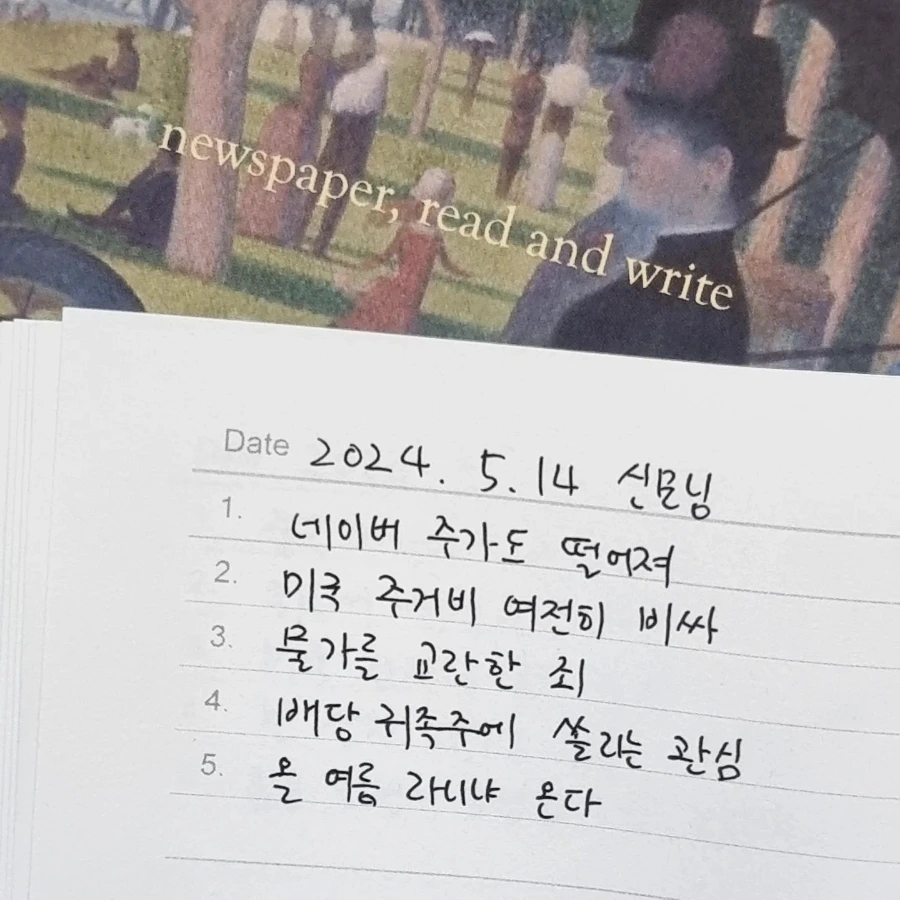 newspaper, read and write
Date 2024. 5. 14 신문넝
1. 네이버 주가도 떨어져
2. 미국 주거비 여전히 비싸
3. 물가를 교란한 죄
4. 배당귀족주에 쏠리는 관심
5. 올 여름 라니냐 온다